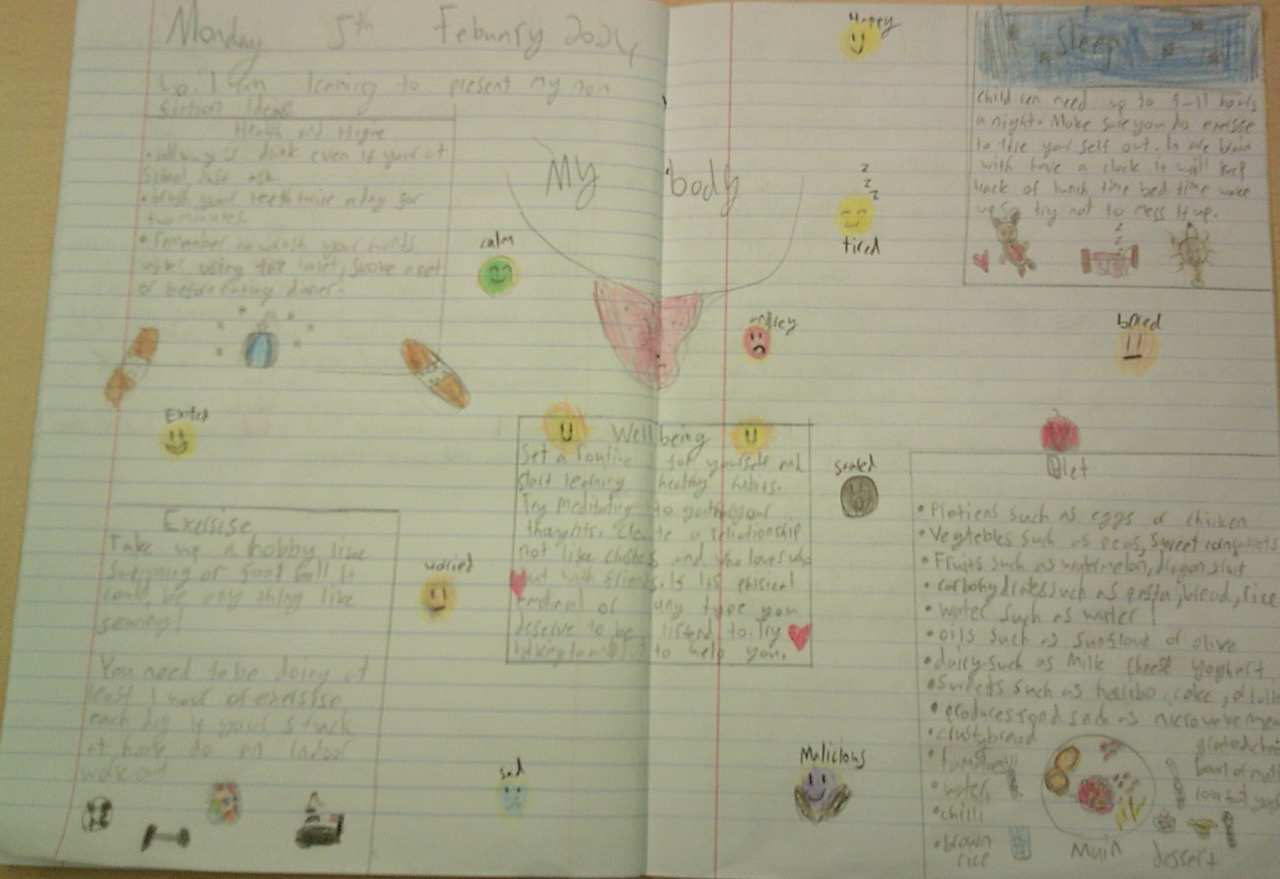 Monday 5th Febunry 2024
Lo: I am learning to present my non
fiction ideas
Health and Higine
• allways drink even if your at
School Just ask
• brush your teeth twice a day for
two minutes
• remember to wash your hands
after using the toilet, a pet
or before eating dinner.
My body
calm
Exited
Happy
tired
z z z
angrey
bored
scared
worried
sad
Malicious
Sleep
children need up to 9-11 hours
a night. Make sure you do exersise
to tire your self out. In are brain
with have a clock it will keep
track of lunch time bed time wake
up so try not to mess it up.
z z z
Well being
Set a routine for yourself and
start learning healthy habits.
Try meditating to gather your
thoughts. Create a relidionship
not like clushes and who loves who
but with friends. If its phisical
or any type you
deserve to be listend to. Try
talking to to help you.
Exersise
Take up a hobby like
swimming or foot ball it
could be any thing like
sewing!
You need to be doing at
least 1 hour of exersise
each day if your stuck
at home do an indoor
work out
Diet
• Protiens such as eggs or chicken
• Vegtebles such as peas, sweet
• Fruits such as watermelon, dragon fruit
• carbohydrates such as pasta, bread, rice
• water such as water!
• oils such as sunflowe or olive
• dairy such as Milk cheese yoghurt
• Sweets such as haribo, cake,
• produces food such as microwave
• crusty bread
• tomatoes
• water
• chilli
• brown
rice
Main
dessert
bowl of
low fat